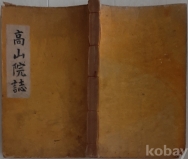 高山院誌
kobay